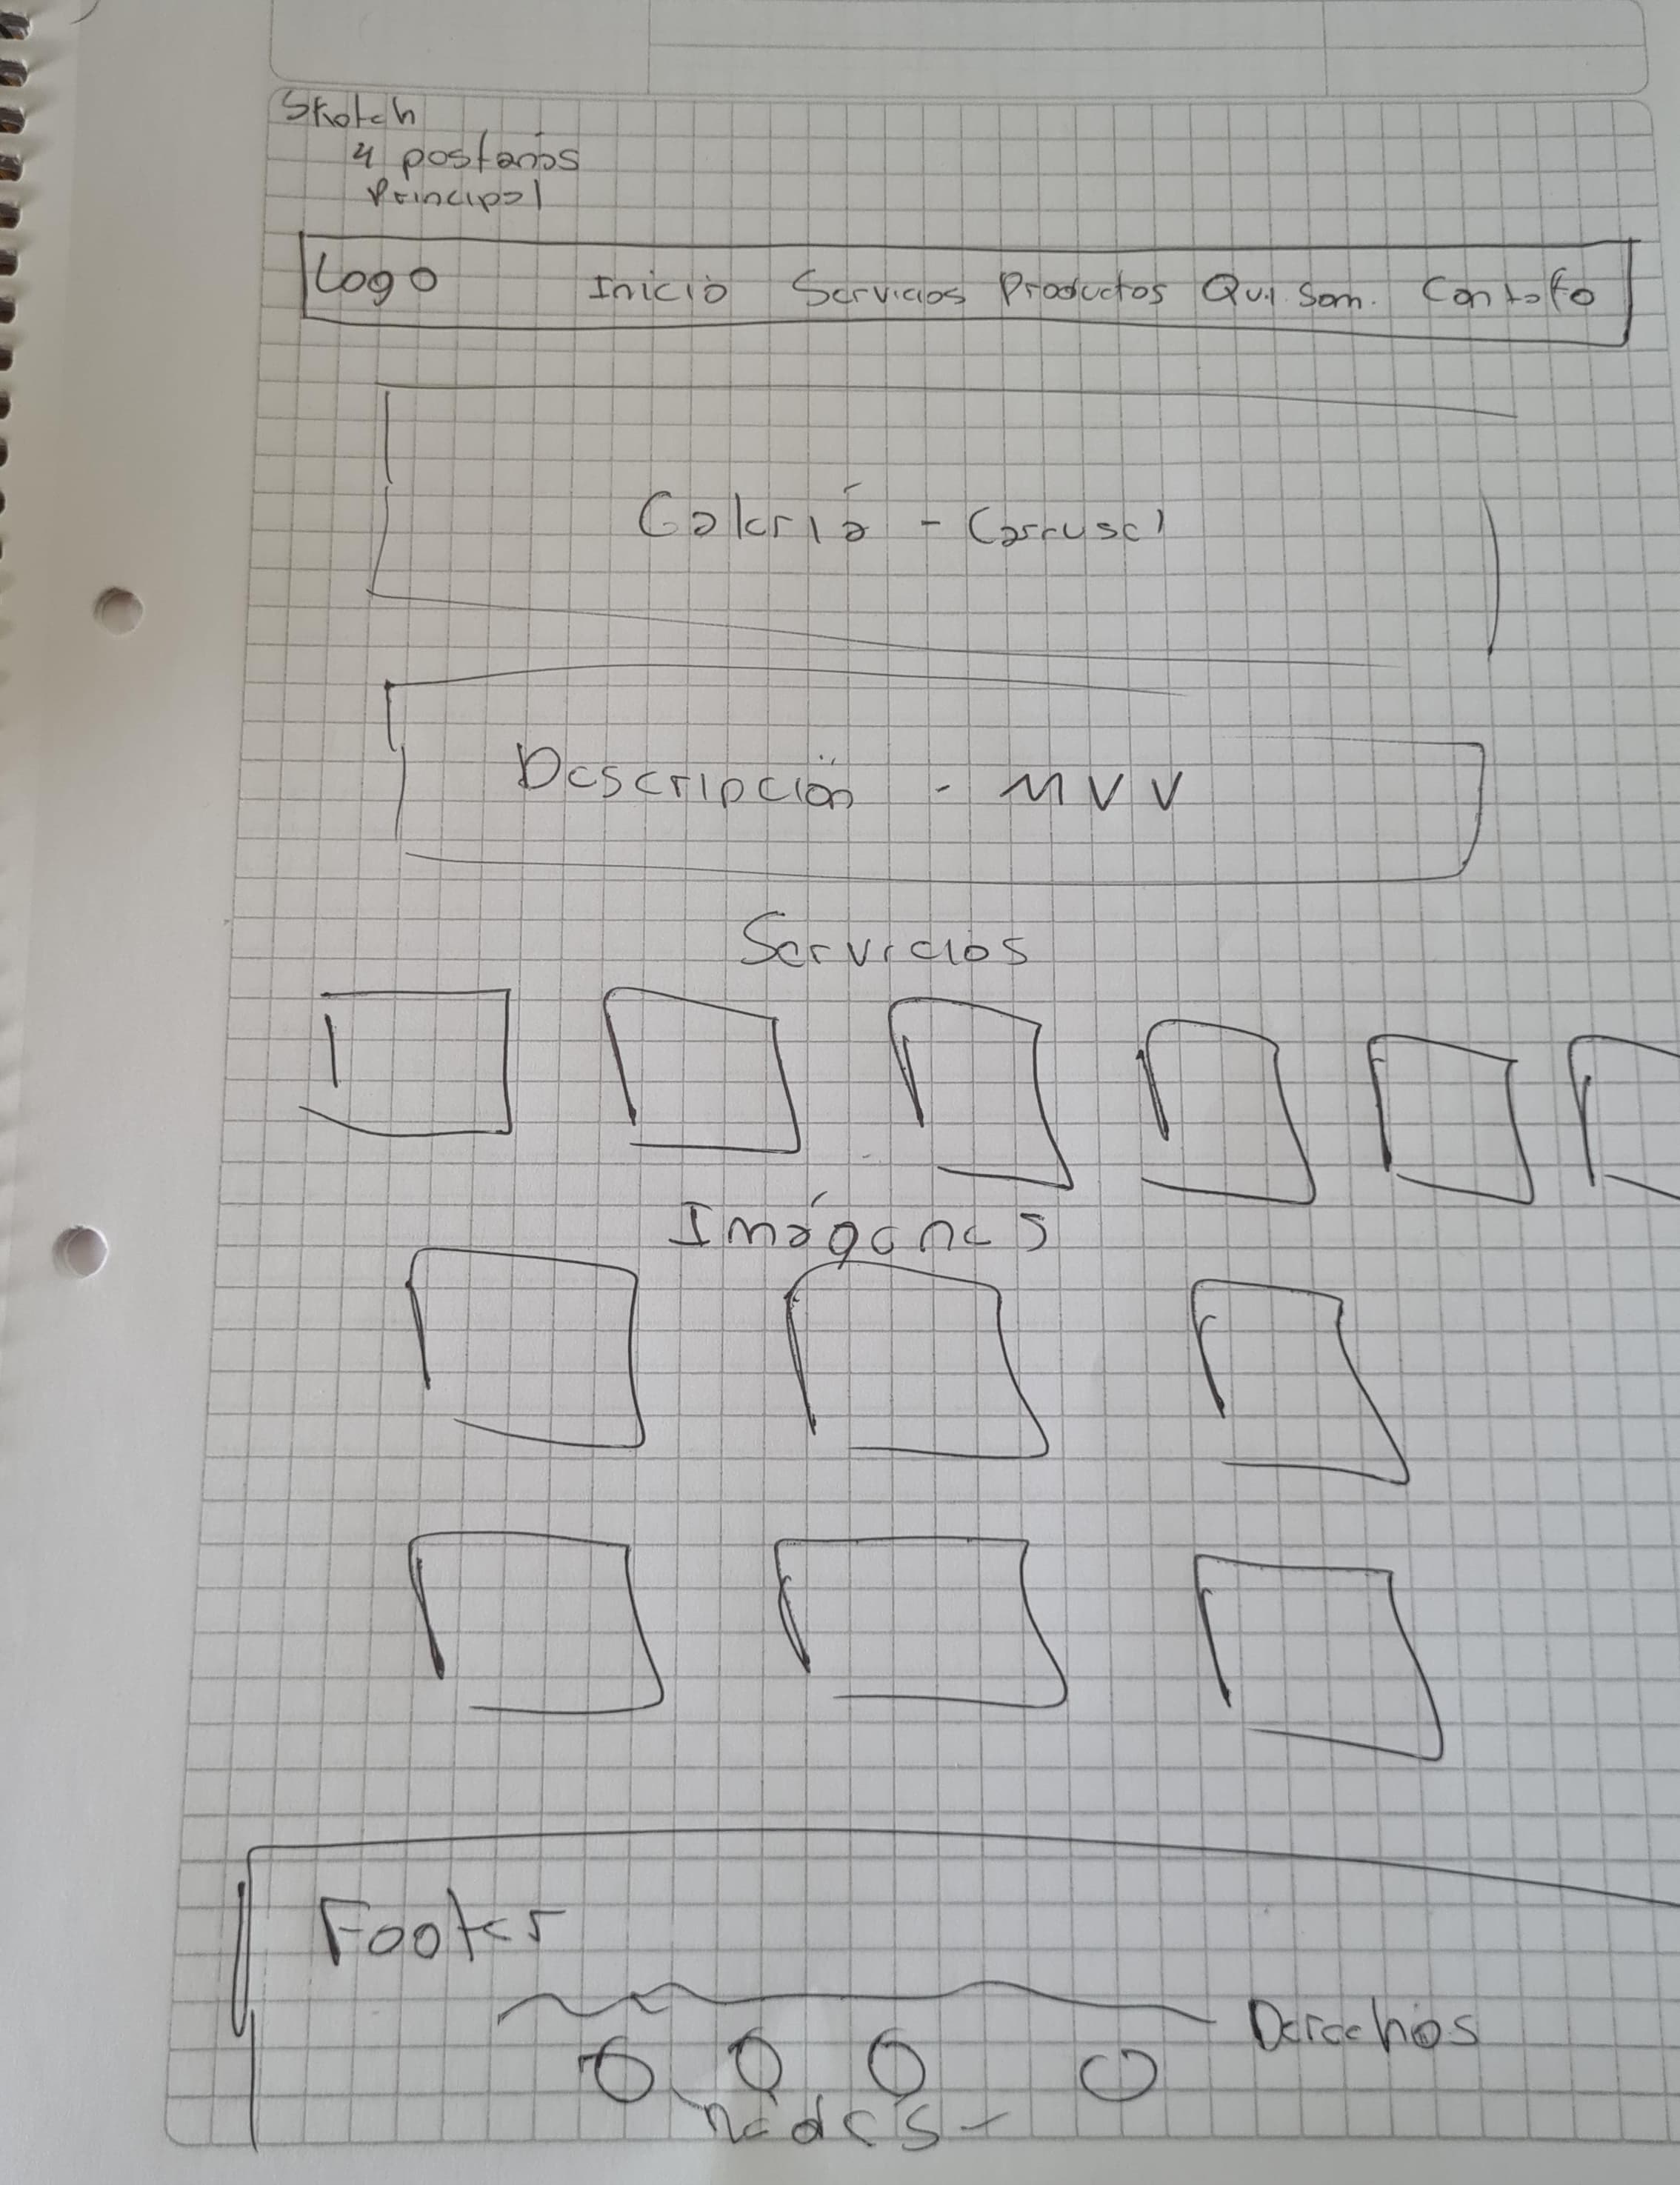 Sketch
4 pestañas
Principal
Logo Inicio Servicios Productos Qui. Som. Contato
Galeriá - Carrusel
Descripción - MVV
Servicios
Imágenes
Footer
Derechos
Redes